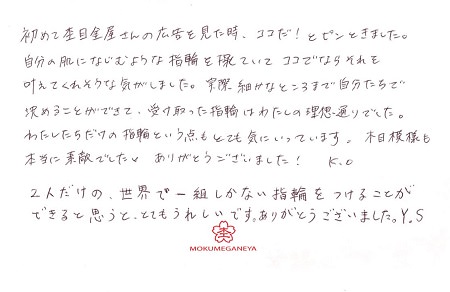 初めて杢目金屋さんの広告を見た時、ココだ!とピンときました。
自分の肌になじむような指輪を探していてココでならそれを
叶えてくれそうな気がしました。実際細かなところまで自分たちで
決めることができて、受け取った指輪はわたしの理想通りでした。
わたしたちだけの指輪という点もとても気にいっています。木目模様も
本当に素敵でした♡ ありがとうございました! K.O
2人だけの、世界で一組しかない指輪をつけることが
できると思うと、とてもうれしいです。ありがとうございました。Y.S
杢
MOKUMEGANEYA